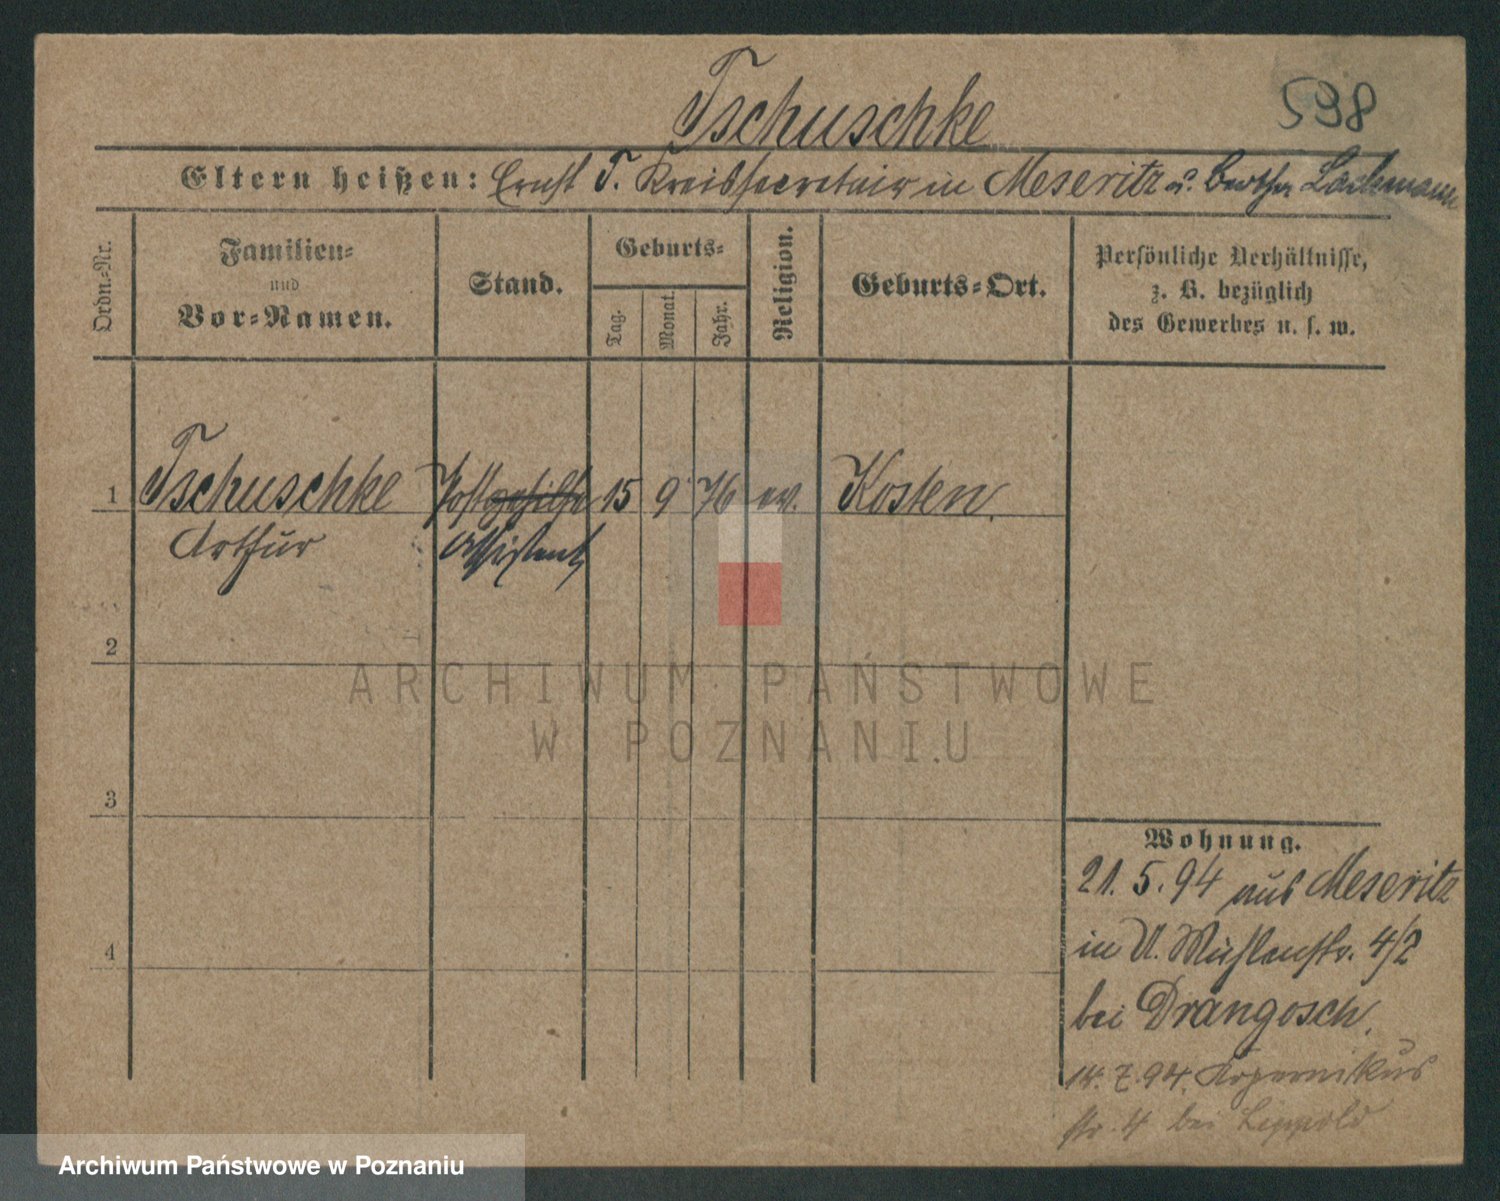 Tschuschke
598
Eltern heißen: Ernst T. Kreissecretair in Meseritz u. Bertha Lachmann
Ordn.-Nr.
Familien-
und
Vor-Namen.
Stand.
Geburts-
Tag.
Monat.
Jahr.
Religion.
Geburts-Ort.
Persönliche Verhältnisse,
z. B. bezüglich
des Gewerbes u. s. w.
1 Tschuschke Postgehilfe 15 9 76 ev. Kosten.
Arthur Assistent
2
3
4
Wohnung.
21. 5. 94 aus Meseritz
in U. Mühlenstr. 4/2
bei Drangosch.
14. 7. 94. Kopernikus
str. 4 bei Lippold
ARCHIWUM PAŃSTWOWE
W POZNANIU
Archiwum Państwowe w Poznaniu